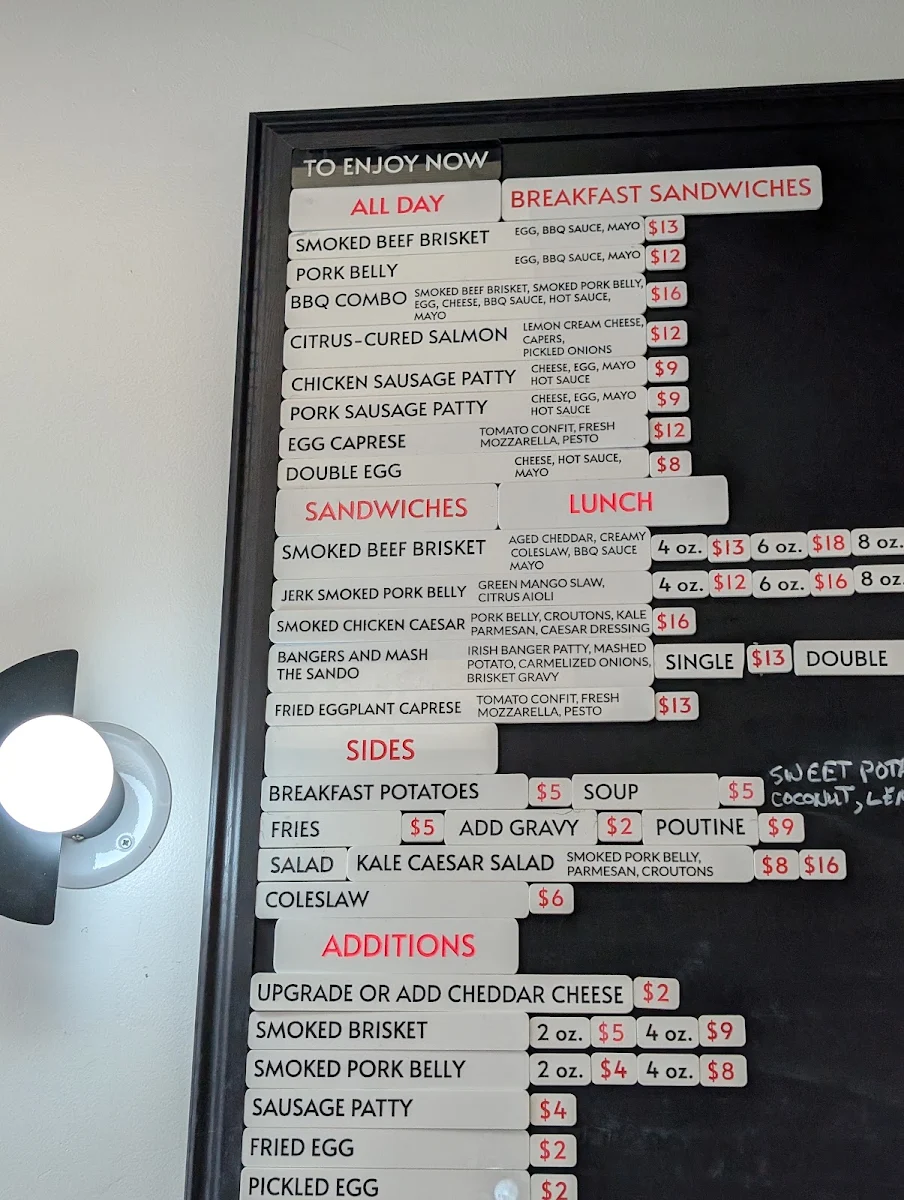 TO ENJOY NOW
ALL DAY BREAKFAST SANDWICHES
SMOKED BEEF BRISKET EGG, BBQ SAUCE, MAYO $13
PORK BELLY EGG, BBQ SAUCE, MAYO $12
BBQ COMBO SMOKED BEEF BRISKET, SMOKED PORK BELLY, $16
EGG, CHEESE, BBQ SAUCE, HOT SAUCE,
MAYO
CITRUS-CURED SALMON LEMON CREAM CHEESE, $12
CAPERS,
PICKLED ONIONS
CHICKEN SAUSAGE PATTY CHEESE, EGG, MAYO $9
HOT SAUCE
PORK SAUSAGE PATTY CHEESE, EGG, MAYO $9
HOT SAUCE
EGG CAPRESE TOMATO CONFIT, FRESH $12
MOZZARELLA, PESTO
DOUBLE EGG CHEESE, HOT SAUCE, $8
MAYO
SANDWICHES LUNCH
SMOKED BEEF BRISKET AGED CHEDDAR, CREAMY 4 oz. $13 6 oz. $18 8 oz.
COLESLAW, BBQ SAUCE
MAYO
JERK SMOKED PORK BELLY GREEN MANGO SLAW, 4 oz. $12 6 oz. $16 8 oz.
CITRUS AIOLI
SMOKED CHICKEN CAESAR PORK BELLY, CROUTONS, KALE $16
PARMESAN, CAESAR DRESSING
BANGERS AND MASH IRISH BANGER PATTY, MASHED SINGLE $13 DOUBLE
THE SANDO POTATO, CARMELIZED ONIONS,
BRISKET GRAVY
FRIED EGGPLANT CAPRESE TOMATO CONFIT, FRESH $13
MOZZARELLA, PESTO
SIDES
BREAKFAST POTATOES $5 SOUP $5 SWEET
COCONUT,
FRIES $5 ADD GRAVY $2 POUTINE $9
SALAD KALE CAESAR SALAD SMOKED PORK BELLY, $8 $16
PARMESAN, CROUTONS
COLESLAW $6
ADDITIONS
UPGRADE OR ADD CHEDDAR CHEESE $2
SMOKED BRISKET 2 oz. $5 4 oz. $9
SMOKED PORK BELLY 2 oz. $4 4 oz. $8
SAUSAGE PATTY $4
FRIED EGG $2
PICKLED EGG $2